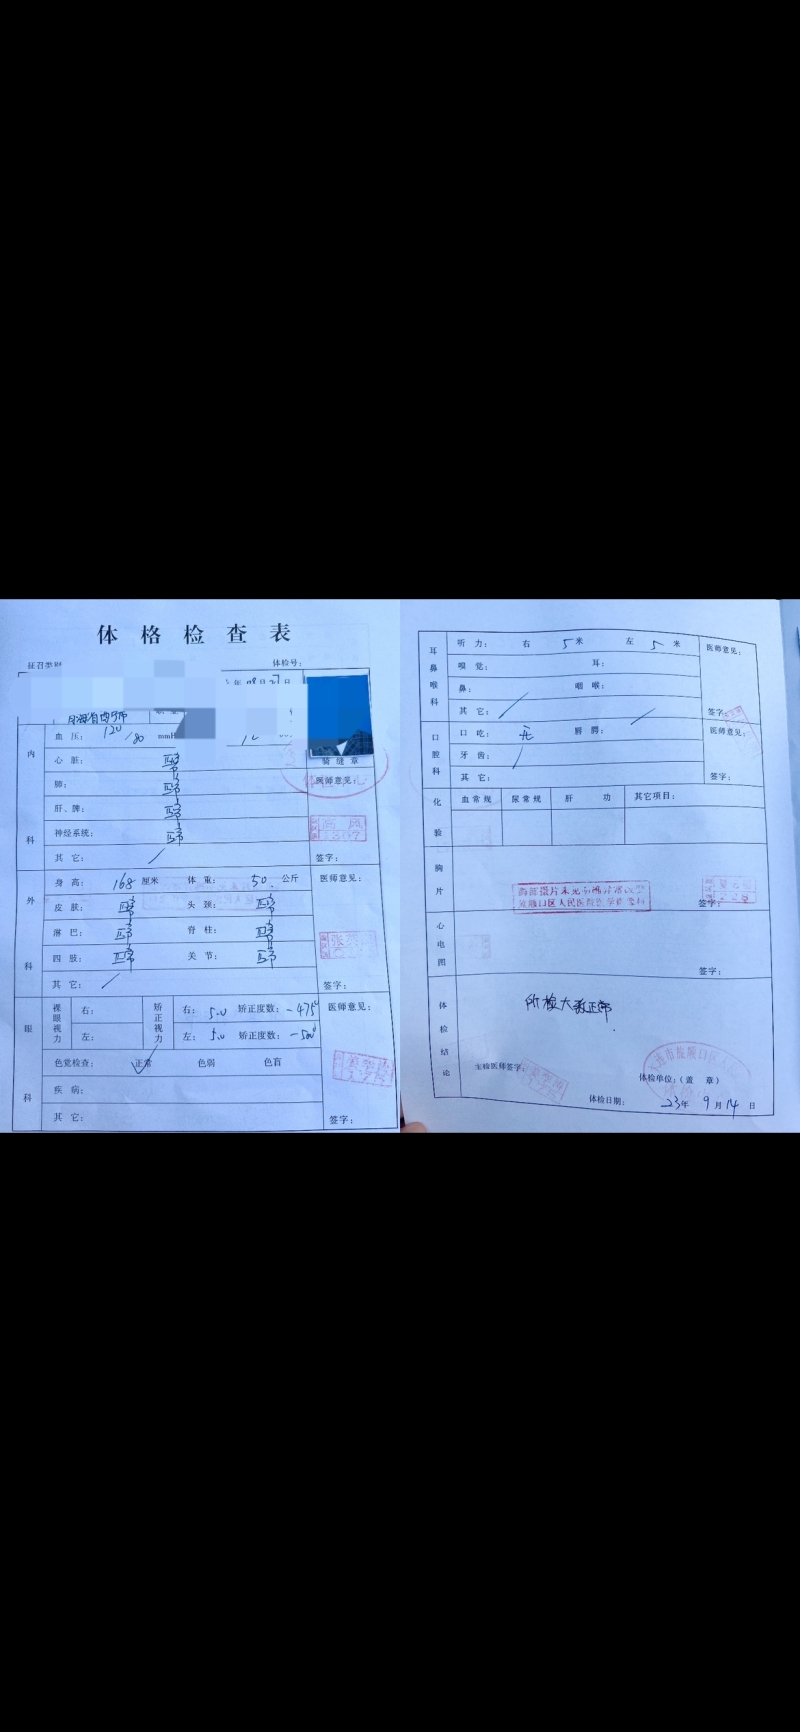 体格检查表
征召类别
体检号:
月 日
血压: 120/80 mmH
骑缝章
内科
心脏: 正常
医师意见:
肺: 正常
肝、脾: 正常
神经系统: 正常
其它: /
签字:
外科
身高: 168 厘米 体重: 50 公斤
医师意见:
皮肤: 正常 头颈: 正常
淋巴: 正常 脊柱: 正常
四肢: 正常 关节: 正常
其它: /
签字:
眼科
裸眼视力 右: 矫正视力 右: 5.0 矫正度数: -475°
医师意见:
左: 左: 5.0 矫正度数: -500°
色觉检查: 正常 色弱 色盲
疾病:
其它:
签字:
耳鼻喉科
听力: 右 5米 左 5米
医师意见:
嗅觉: 耳:
鼻: 咽喉:
其它: /
签字:
口腔科
口吃: 无 唇腭: /
医师意见:
牙齿: /
其它:
签字:
化验
血常规 尿常规 肝功 其它项目:
胸片
签字:
心电图
签字:
体检结论
所检大致正常
主检医师签字:
体检单位:(盖章)
体检日期: 23年 9月14日